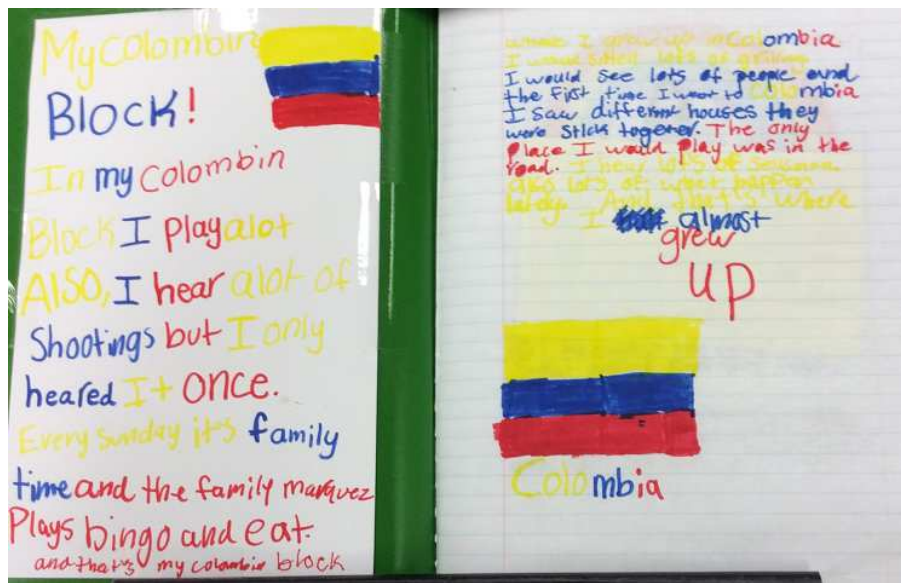 My Colombin
Block!
In my Colombin
Block I play alot
ALSO, I hear alot of
Shootings but I only
heared It once.
Every sunday it's family
time and the family marquez
Plays bingo and eat.
and that's my colombin block
where I grew up in Colombia
I would smell lots of grilling
I would see lots of people and
the First time I went to Colombia
I saw different houses they
were stick together. The only
Place I would play was in the
road. I hear lots of
also lots of what happen
lately. And that's where
I almost
grew
up
Colombia